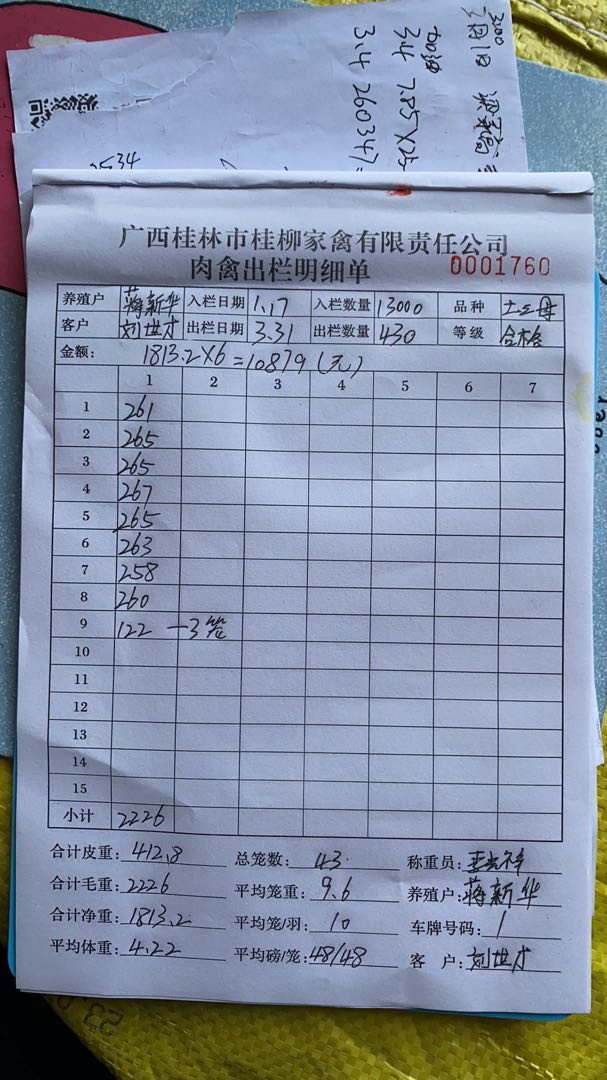 3月1日
34 7.85×25
3.4 260347=
2534
广西桂林市桂柳家禽有限责任公司
肉禽出栏明细单 0001760
养殖户 蒋新华 入栏日期 1.17 入栏数量 13000 品种 土2母
客户 刘世才 出栏日期 3.31 出栏数量 430 等级 合格
金额: 1813.2×6=10879(元)
1 2 3 4 5 6 7
1 261
2 265
3 265
4 267
5 265
6 263
7 258
8 260
9 122 —3笼
10
11
12
13
14
15
小计 2226
合计皮重: 412.8 总笼数: 43 称重员:
合计毛重: 2226 平均笼重: 9.6 养殖户: 蒋新华
合计净重: 1813.2 平均笼/羽: 10 车牌号码: 1
平均体重: 4.22 平均磅/笼: 48/48 客 户: 刘世才
23